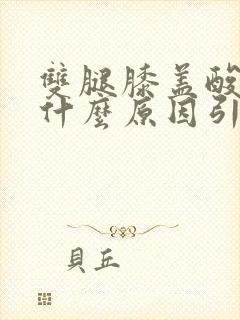 雙腿膝盖酸
什麼原因引
貝丘